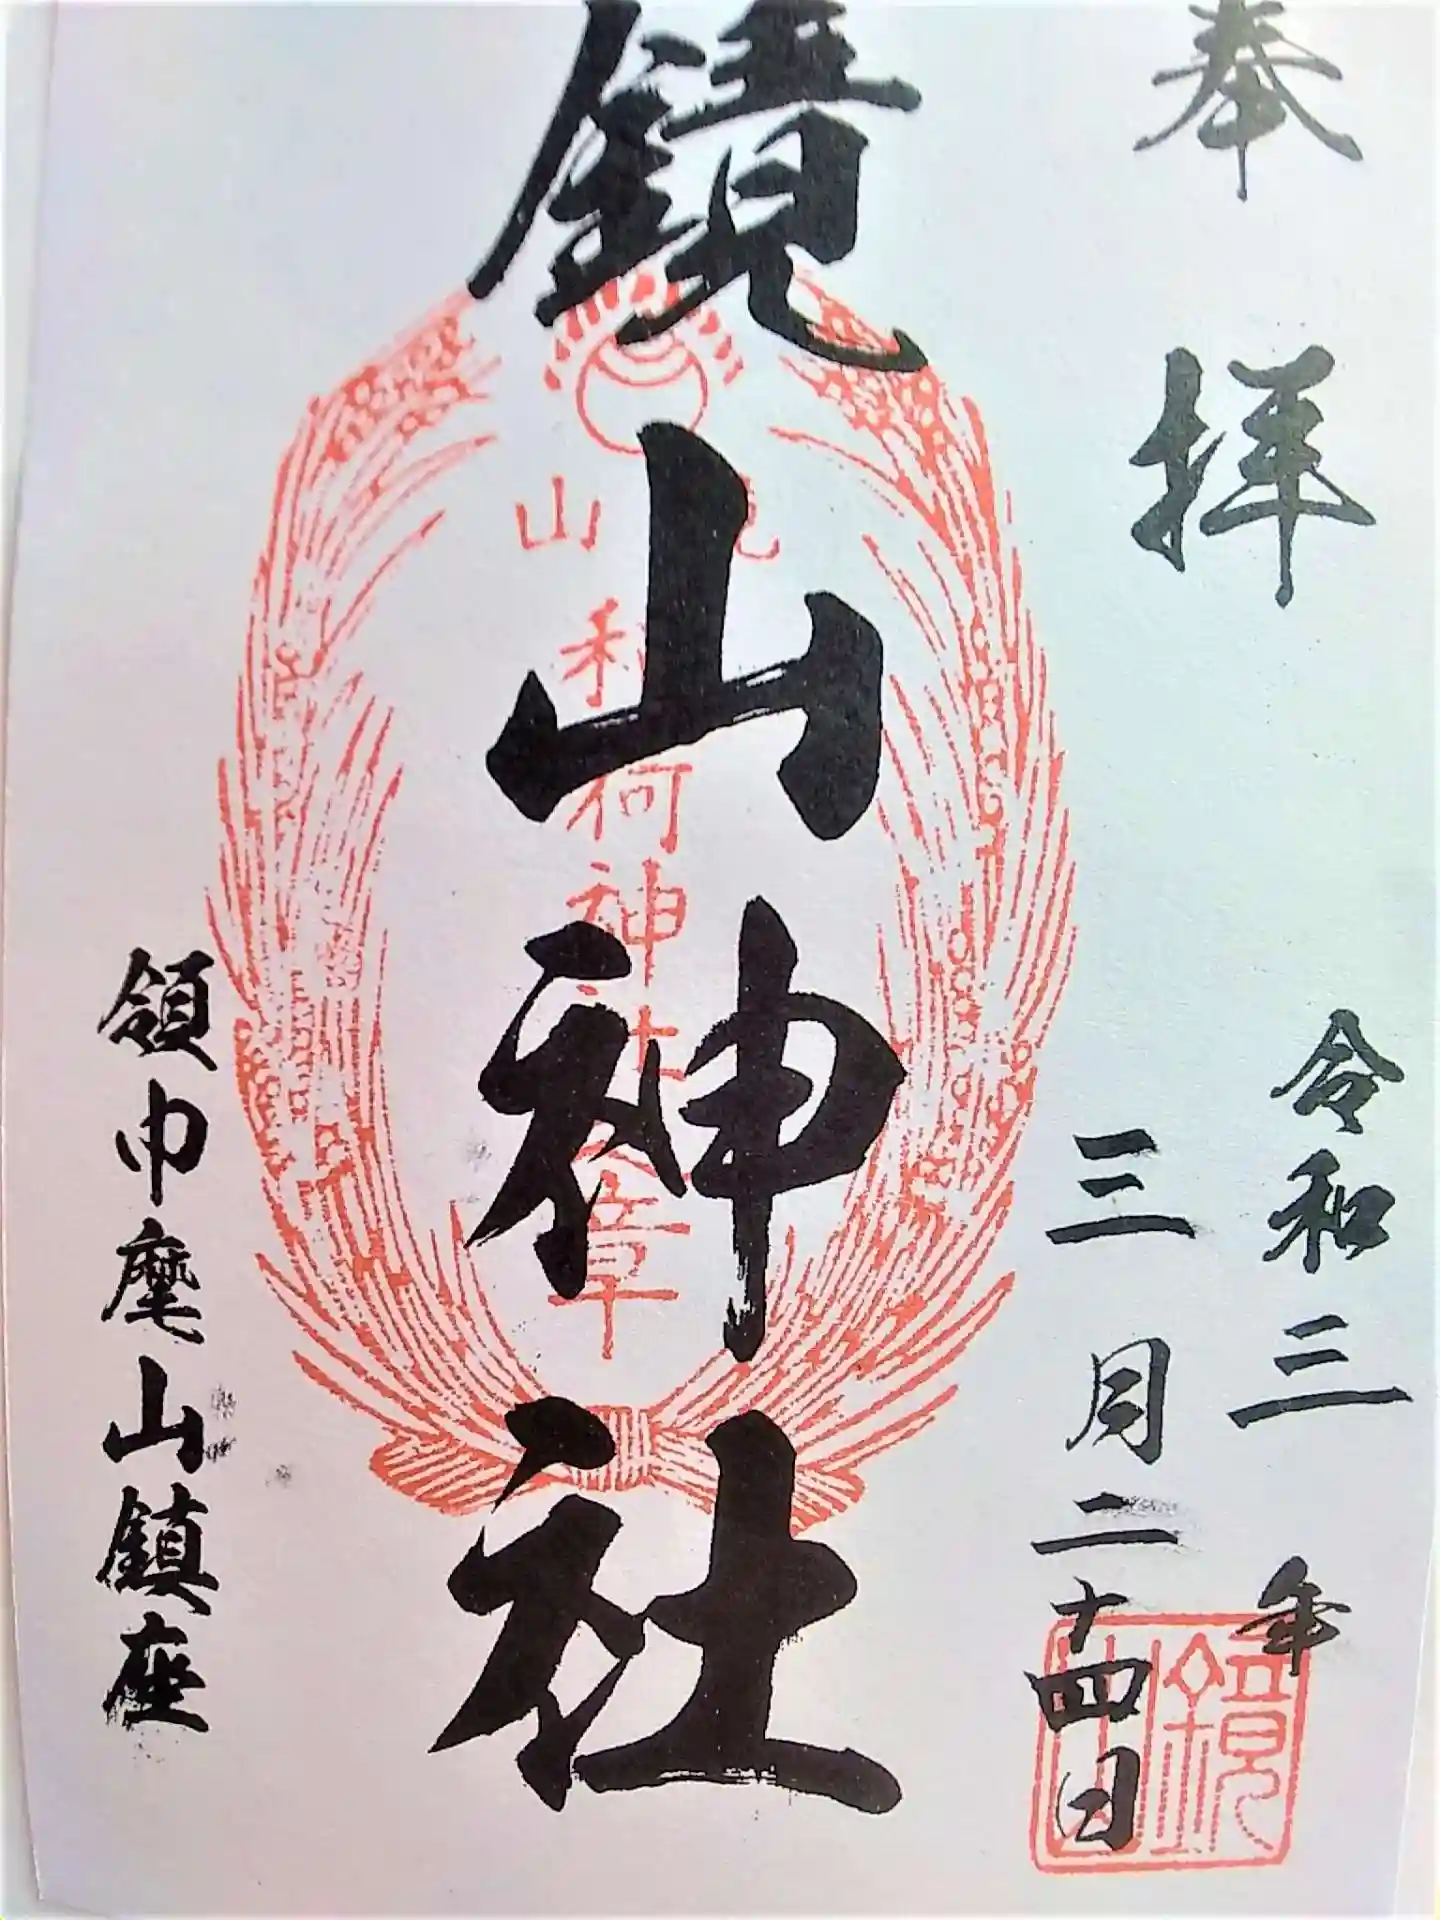 奉拝
令和三年
三月二十四日
鏡山神社
領巾麾山鎮座
山
稲荷神社
章
鏡山